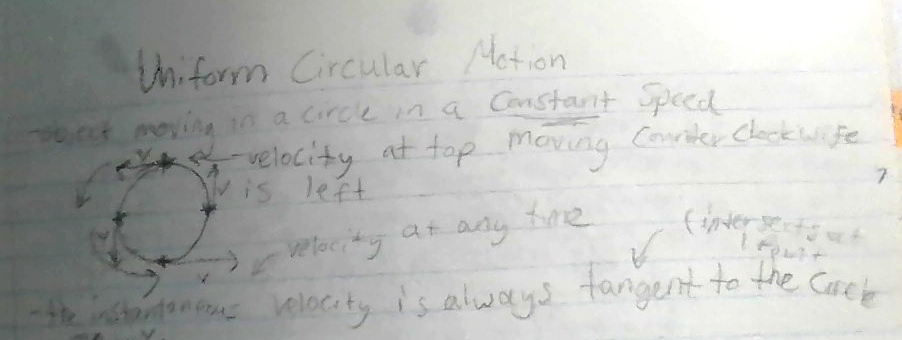 Uniform Circular Motion
-object moving in a circle in a Constant Speed
velocity at top moving Counter Clockwise
v
v is left
velocity at any time
(intersects at
1 point
v
v
-the instantaneous velocity is always tangent to the Circle